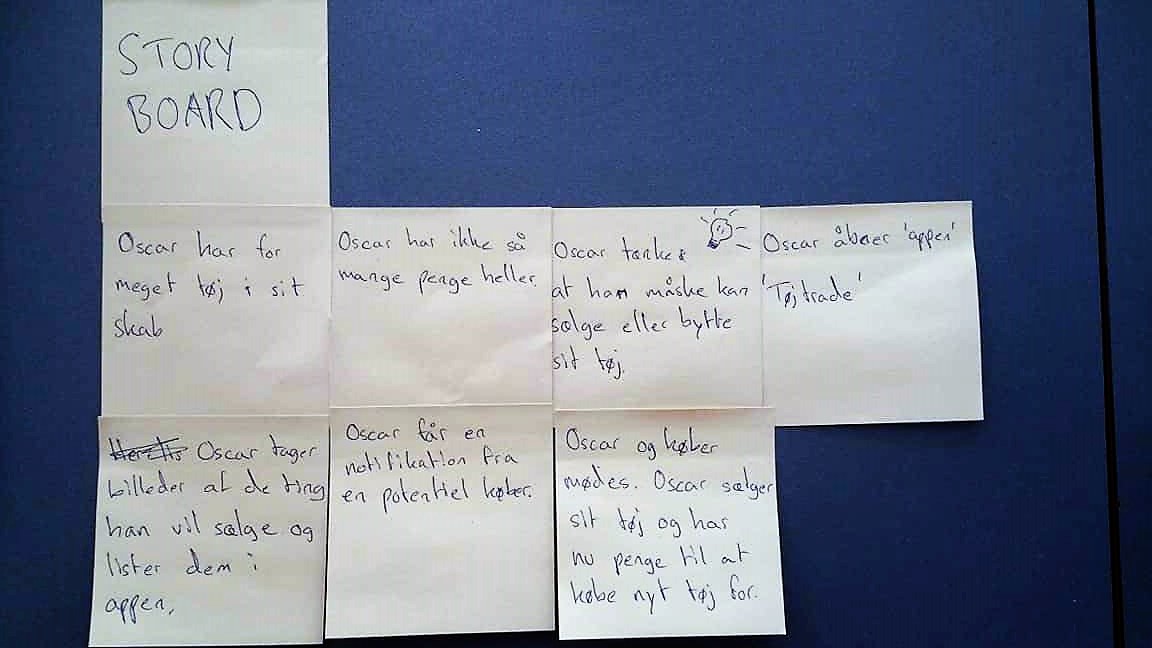 STORY
BOARD
Oscar har for
meget tøj i sit
skab
Oscar har ikke så
mange penge heller.
Oscar tænker
at han måske kan
sælge eller bytte
sit tøj.
Oscar åbner 'appen'
'Tøjtrade'
Oscar tager
billeder af de ting
han vil sælge og
lister dem i
appen.
Oscar får en
notifikation fra
en potentiel køber.
Oscar og køber
mødes. Oscar sælger
sit tøj og har
nu penge til at
købe nyt tøj for.